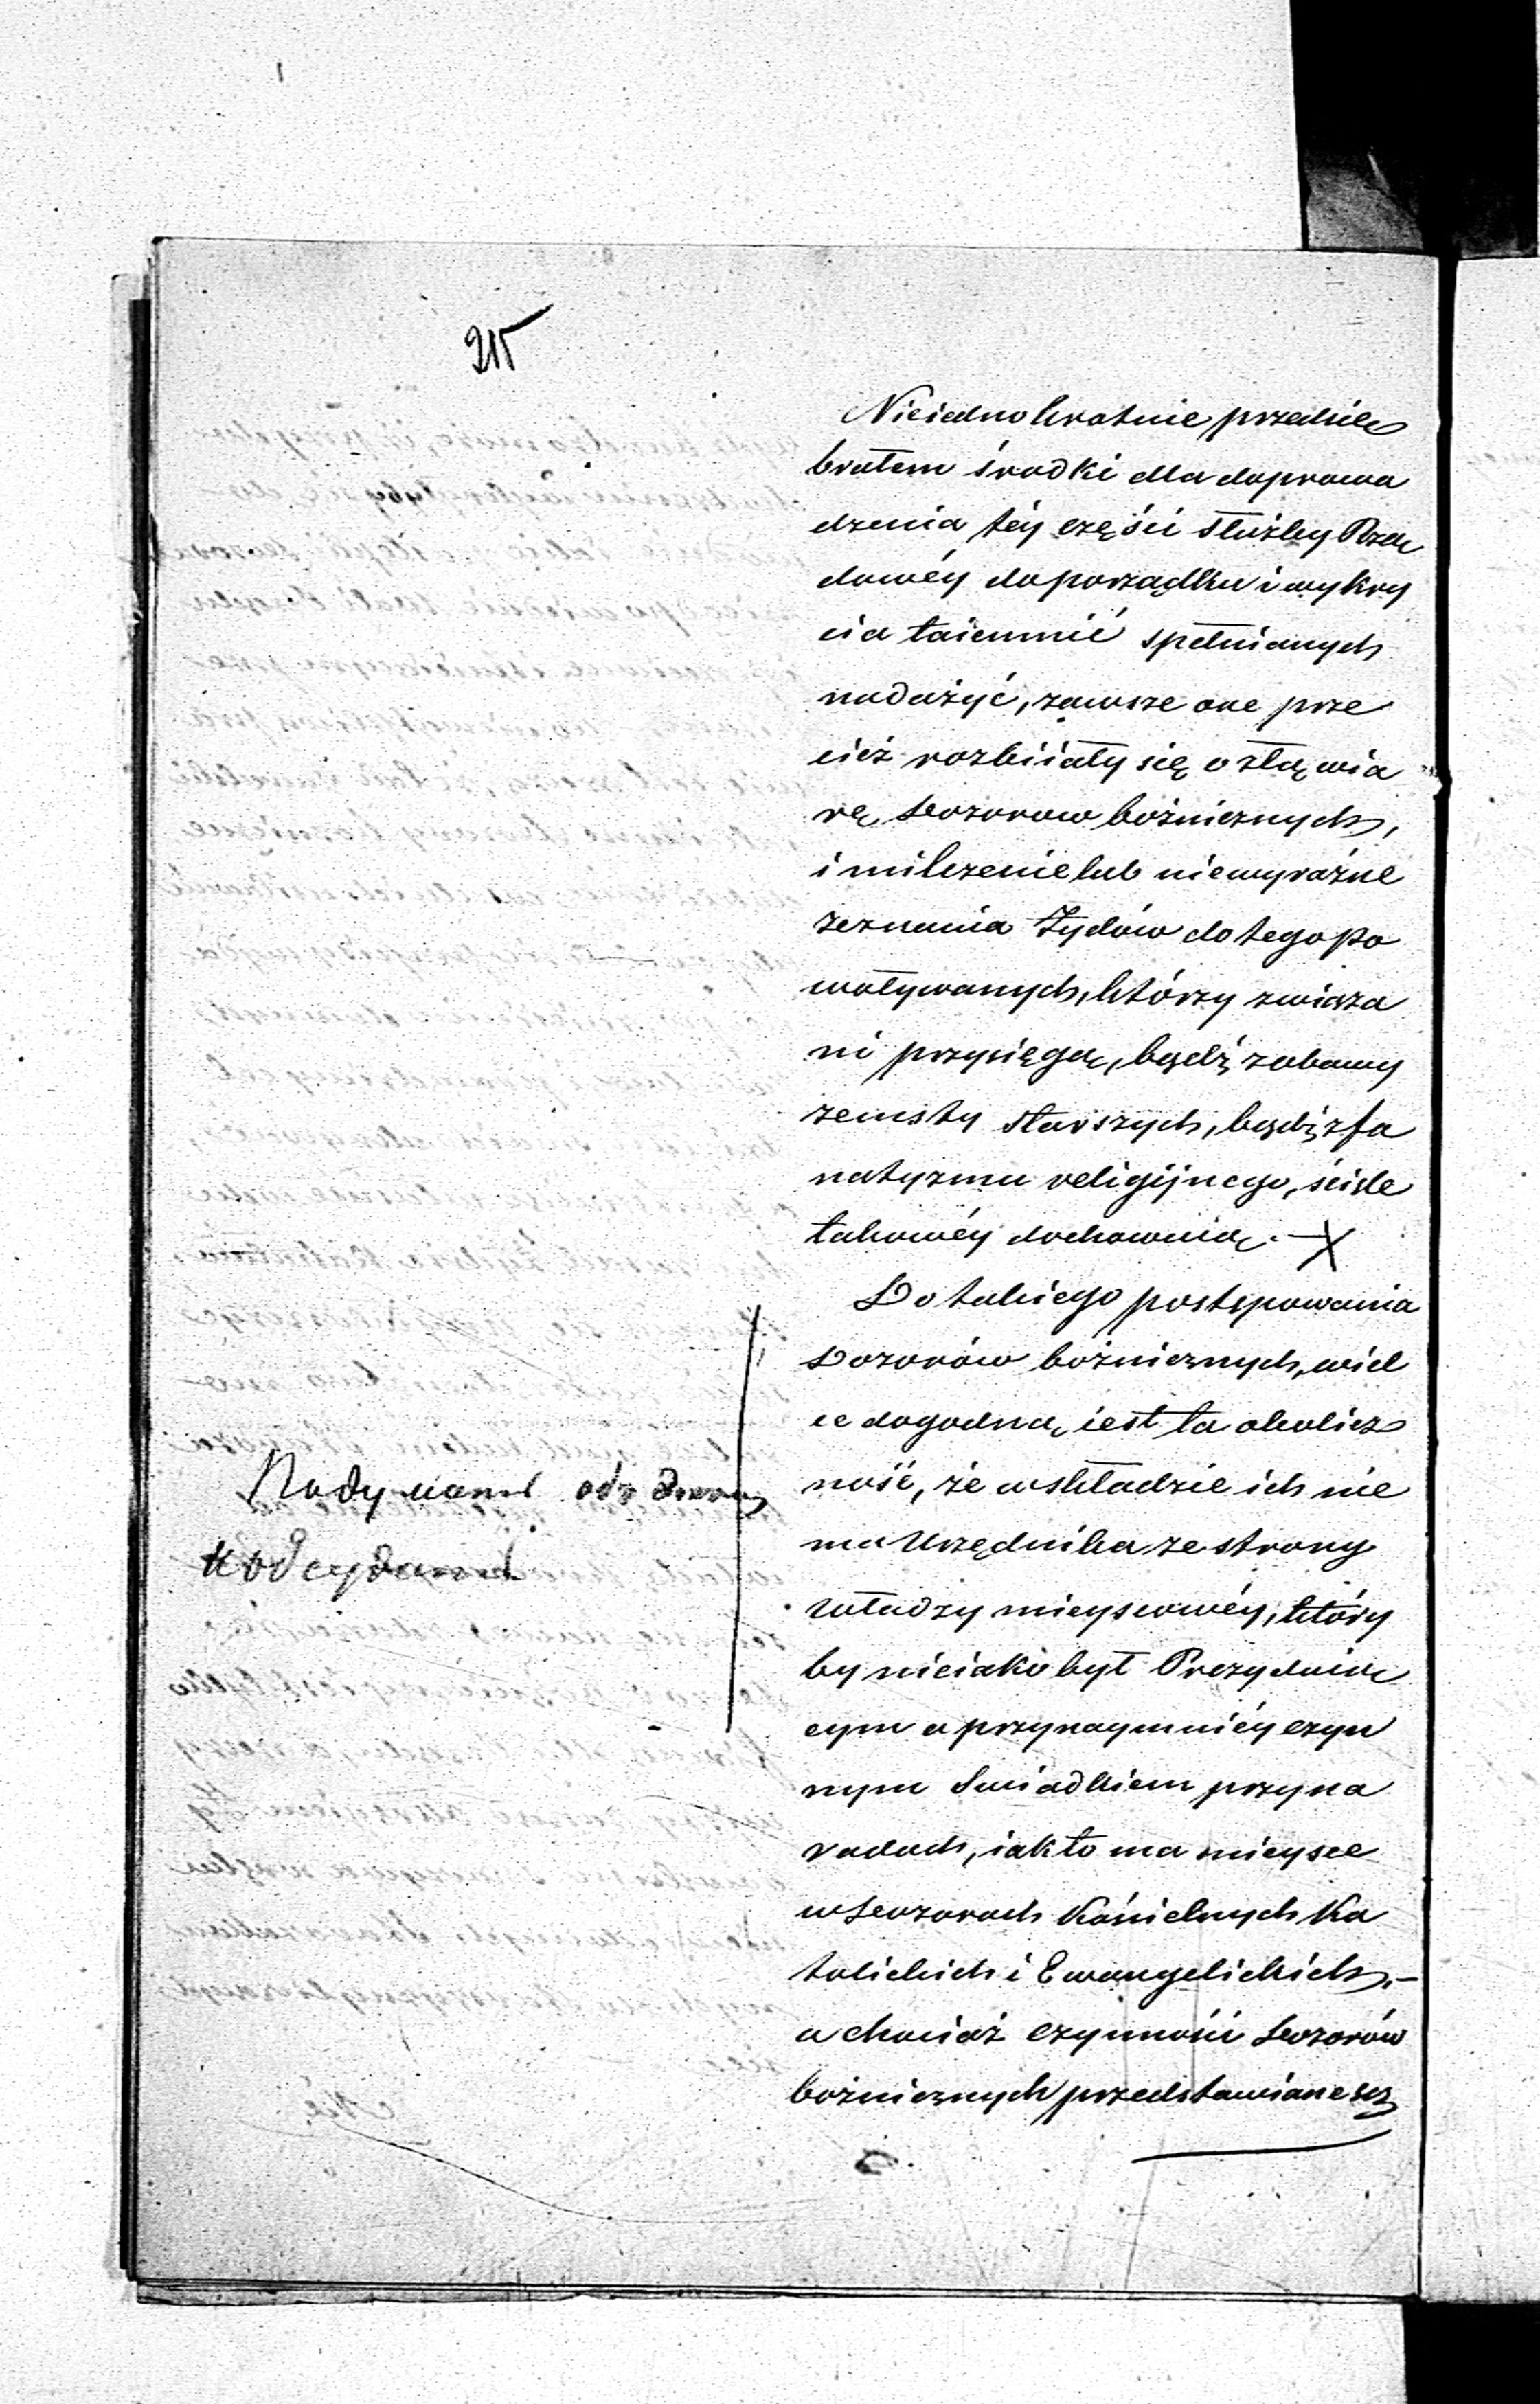 215
Nieiednokratnie przedsię
brałem środki dla doprowa
dzenia téy części służby Rzą
dowéy do porządku i wykry
cia taiemnic spełnianych
nadużyć, zawsze one prze
cież rozbiiały się o złą wia
rę Dozorow bożnicznych,
i milczenie lub niewyraźne
zeznania Żydów do tego po
woływanych, którzy związa
ni przysięgą, bądź z obawy
zemsty starszych, bądź z fa
natyzmu religijnego, ściśle
takowéy dochowuią.
Do takiego postępowania
Dozorów bożnicznych, wiel
ce dogodną iest ta okolicz
ność, że w składzie ich nie
ma Urzędnika ze strony
władzy mieyscowéy, który
by nieiako był Prezyduią
cym a przynaymniéy czyn
nym Świadkiem przy na
radach, iak to ma mieysce
w Dozorach Kościelnych Ka
tolickich i Ewangelickich,-
a chociaż czynności Dozorów
bożnicznych przedstawiane są